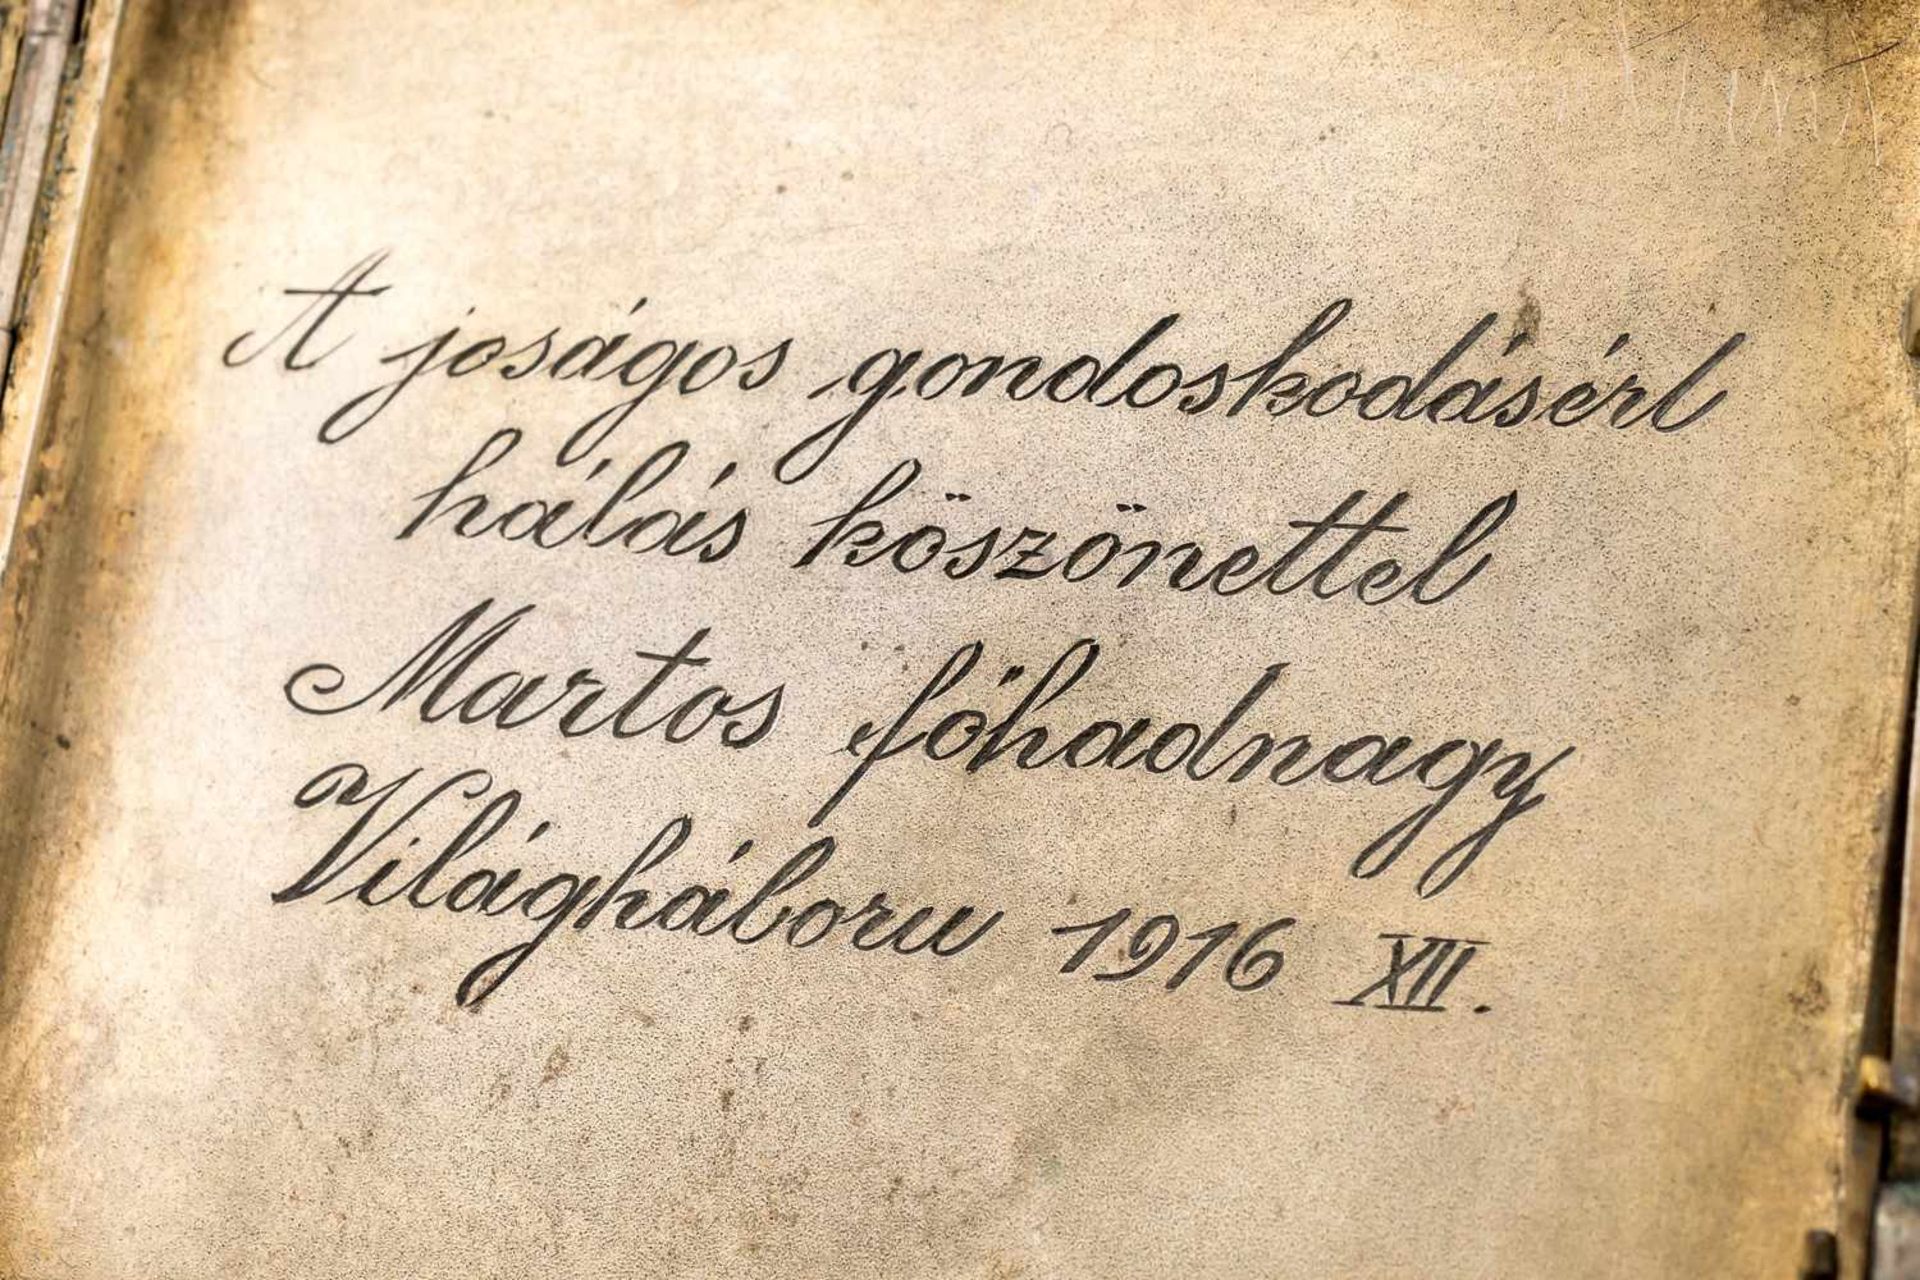 A joságos gondoskodásért
hálás köszönettel
Martos főhadnagy
Világháboru 1916 XII.